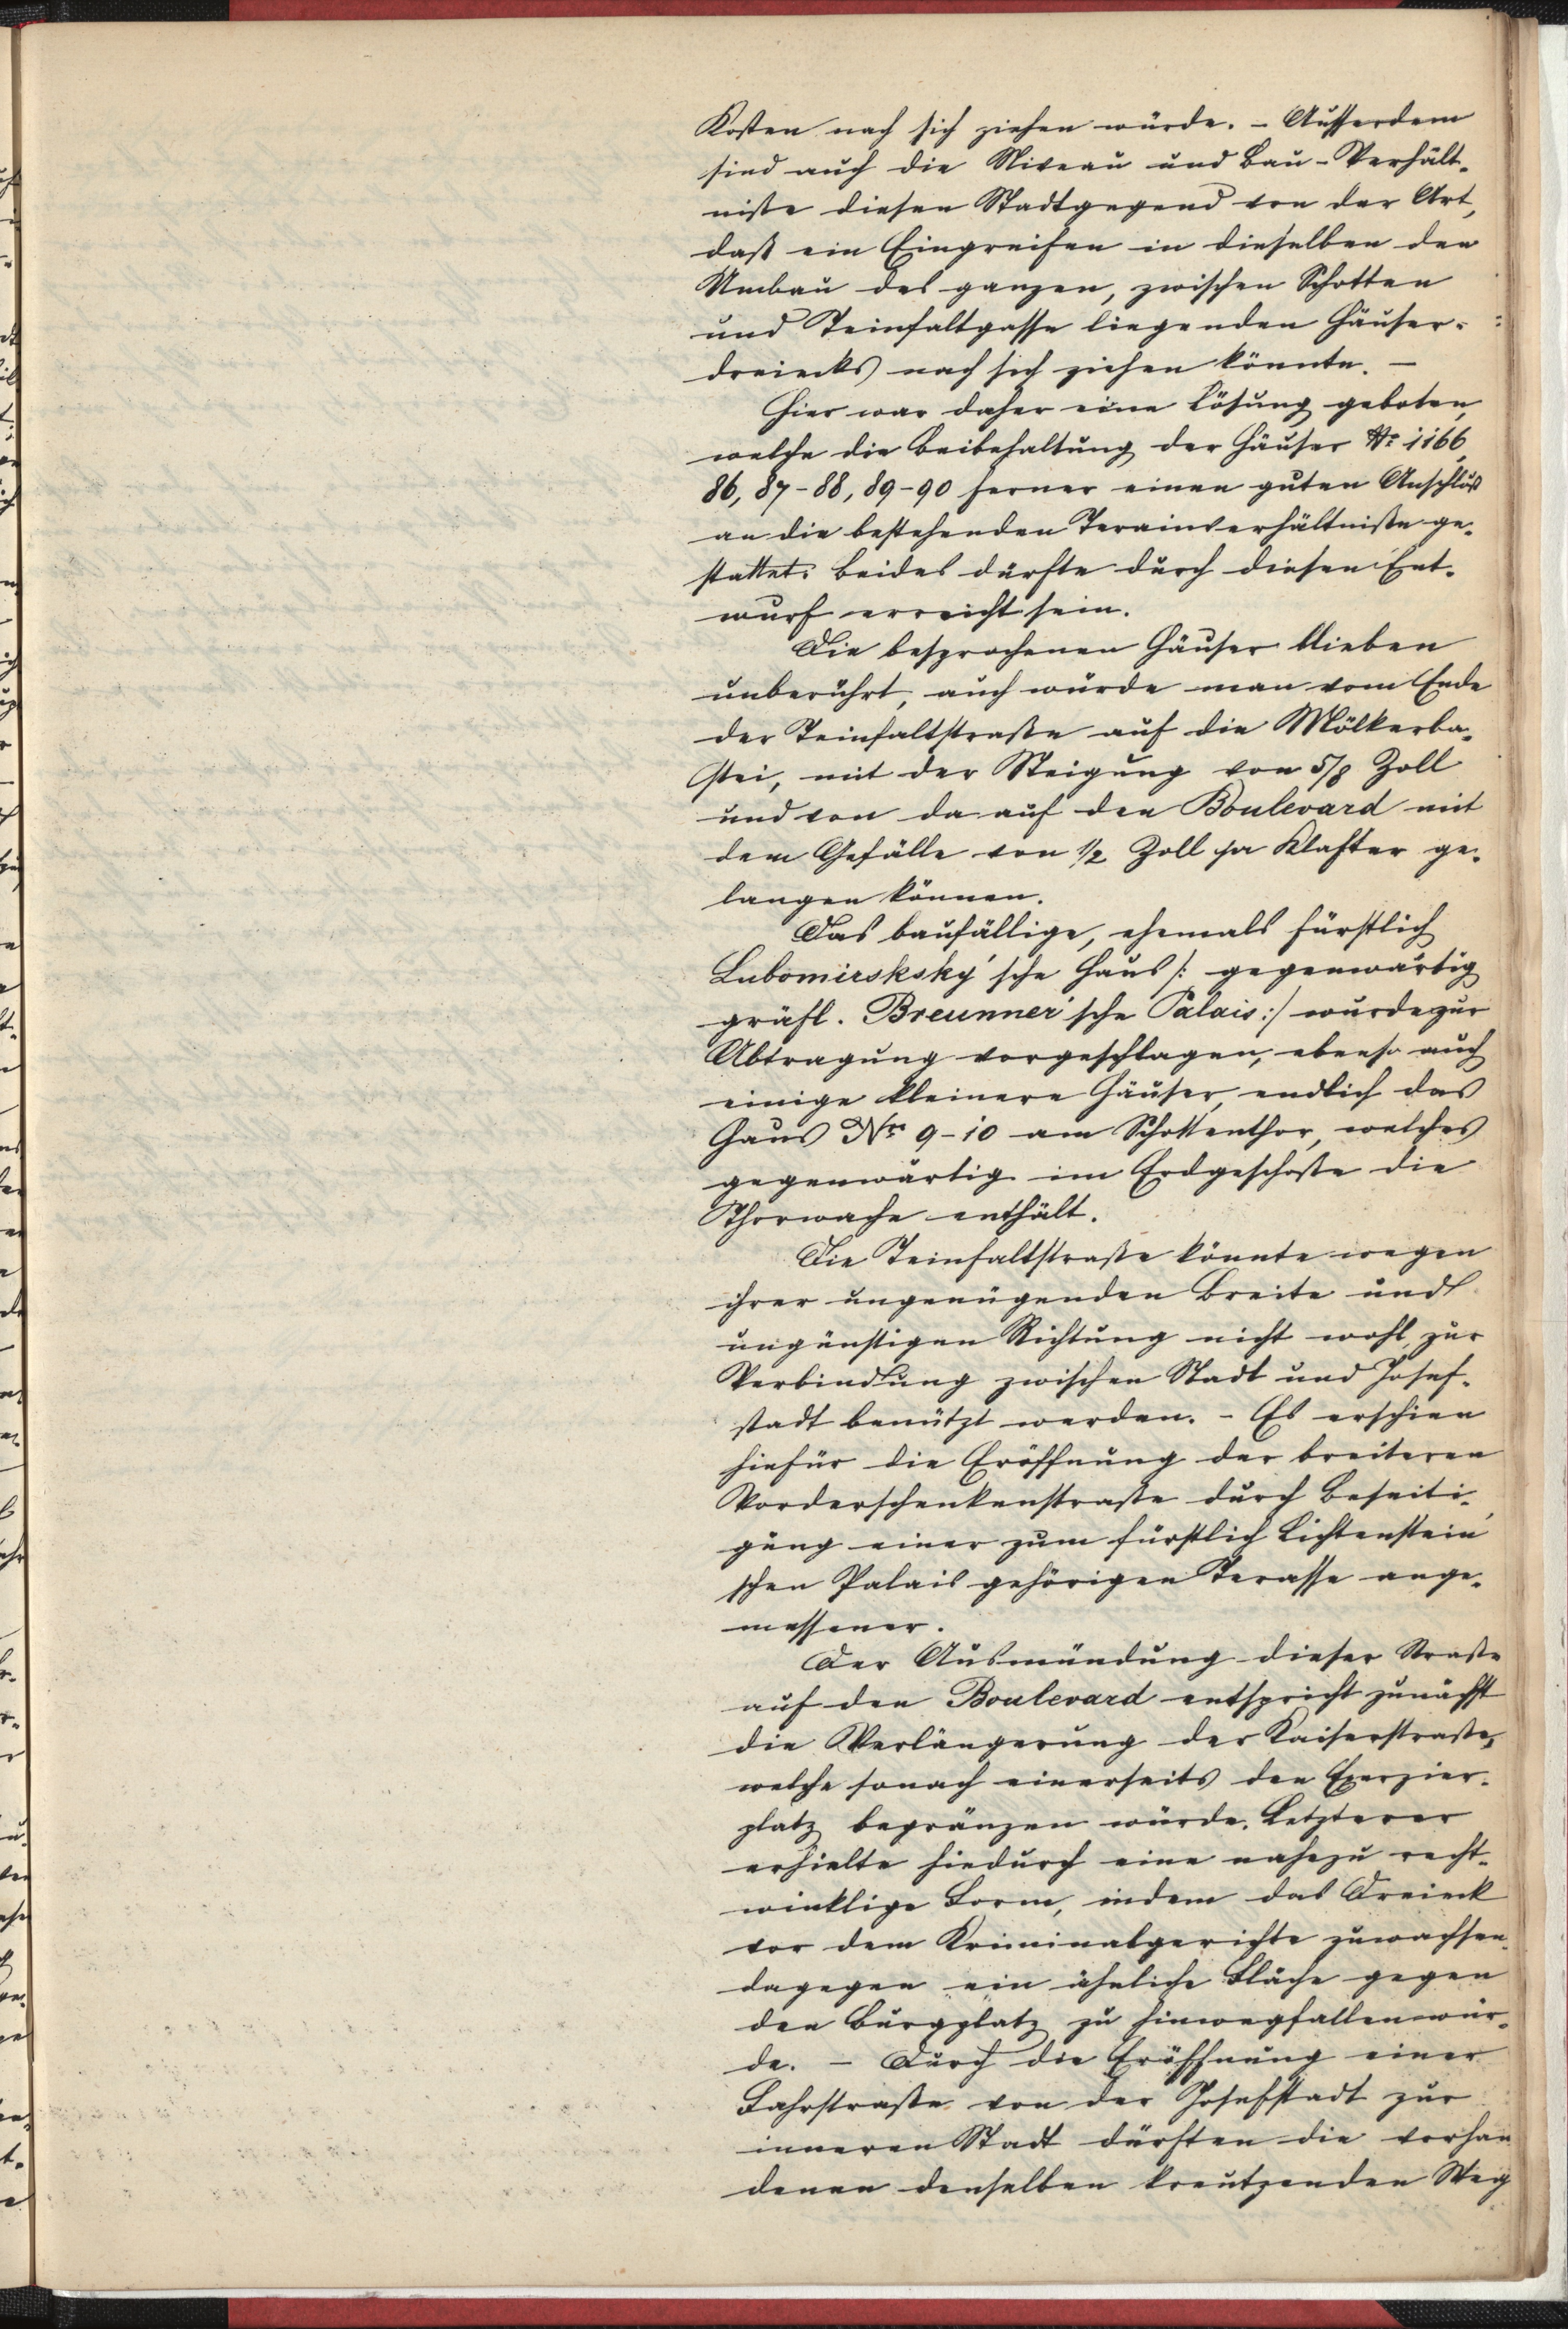 Kosten nach sich ziehen würde. – Ausserdem
sind auch die Niveau und Bau-Verhält-
niße diesen Stadtgegend von der Art,
daß ein Eingreifen in dieselben den
Umbau des ganzen, zwischen Schotten
und Teinfaltgasse liegenden Häuser-
dreiecks nach sich ziehen könnte. –
Hier war daher eine Lösung geboten,
welche die Beibehaltung der Häuser No 1166,
86, 87-88, 89-90 ferner einen guten Anschluß
an die bestehenden Terainverhältniße ge-
stattet: beides dürfte durch diesen Ent-
wurf erreicht sein.
Die besprochenen Häuser blieben
unberührt, auch würde man vom Ende
der Teinfaltstraße auf die Mölkerba-
stei, mit der Steigung von 5/8 Zoll
und von da auf den Boulevard mit
dem Gefälle von 1/2 Zoll pr Klafter ge-
langen können.
Das baufällige, ehemals fürstlich
Lubomirsksky'sche Haus /: gegenwärtig
gräfl. Breunner'sche Palais :/ wurde zur
Abtragung vorgeschlagen, ebenso auch
einige kleinere Häuser, endlich das
Haus Nr 9-10 am Schottenthor, welches
gegenwärtig im Erdgeschoße die
Thorwache enthält.
Die Teinfaltstraße könnte wegen
ihrer ungenügenden Breite und
ungünstigen Richtung nicht wohl zur
Verbindung zwischen Stadt und Josef-
stadt benützt werden. – Es erschien
hiefür die Eröffnung der breiteren
Vorderschenkenstraße durch Beseiti-
gung einer zum fürstlich Lichtenstein'
schen Palais gehörigen Terasse ange-
messener.
Der Ausmündung dieser Straße
auf den Boulevard entspricht zunächst
die Verlängerung der Kaiserstraße,
welche sonach einerseits den Exerzier-
platz begränzen würde. Letzterer
erhielte hiedurch eine nahezu recht-
winklige Form, indem das Dreieck
vor dem Kriminalgerichte zuwachsen
dagegen ein ähnliche Fläche gegen
den Burgplatz zu hinwegfallen wür-
de. – Durch die Eröffnung einer
Fahrstraße von der Josefstadt zur
inneren Stadt dürften die vorhan
denen denselben kreutzenden Weg